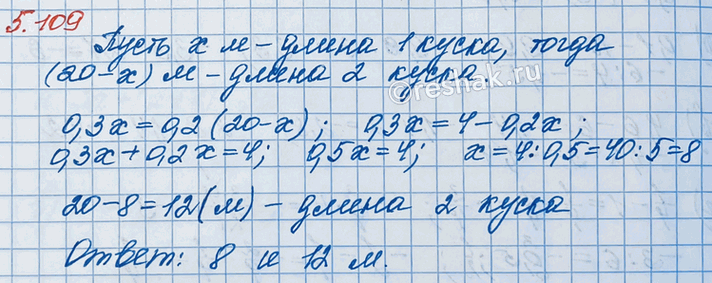 5.109
Пусть x м – длина 1 куска, тогда
(20-x) м – длина 2 куска
©reshak.ru
0,3x=0,2(20-x); 0,3x=4-0,2x;
0,3x+0,2x=4; 0,5x=4; x=4:0,5=40:5=8
20-8=12(м) – длина 2 куска
Ответ: 8 и 12 м.